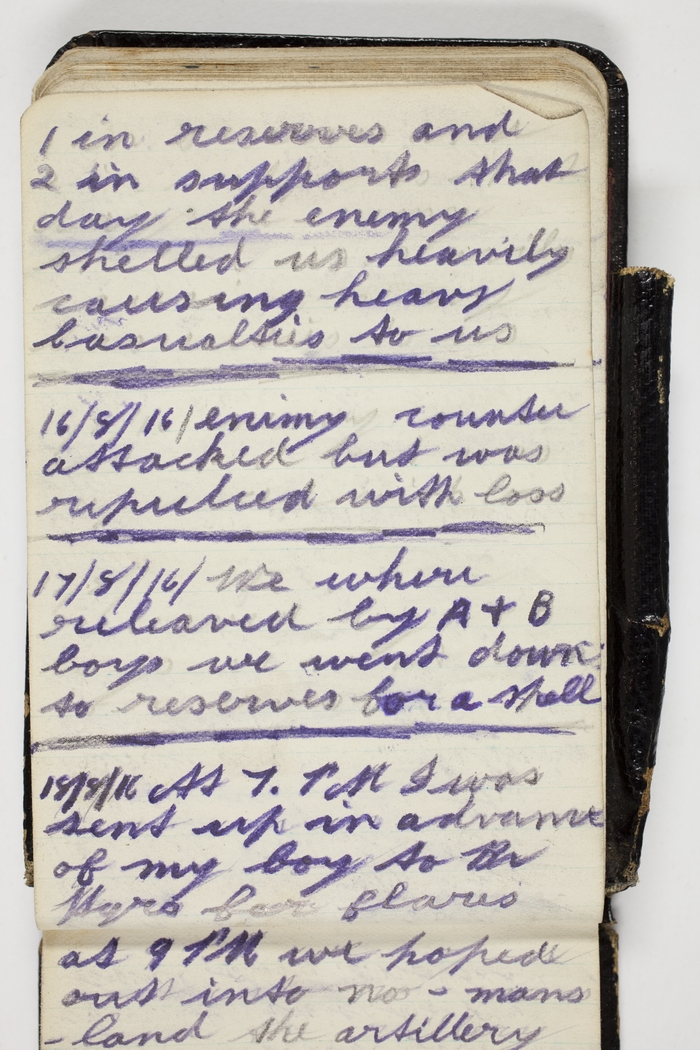 1 in reserves and
2 in supports that
day the enemy
shelled us heavily
causing heavy
casualties to us
16/8/16/ enimy counter
attacked but was
repulced with loss
17/8/16/ We where
releaved by A + B
boys we went down
to reserves for a shell
18/8/16 At 7. PM I was
sent up in advance
of my boy to the
for flares
at 9 PM we hoped
out into no - mans
- land the artillery